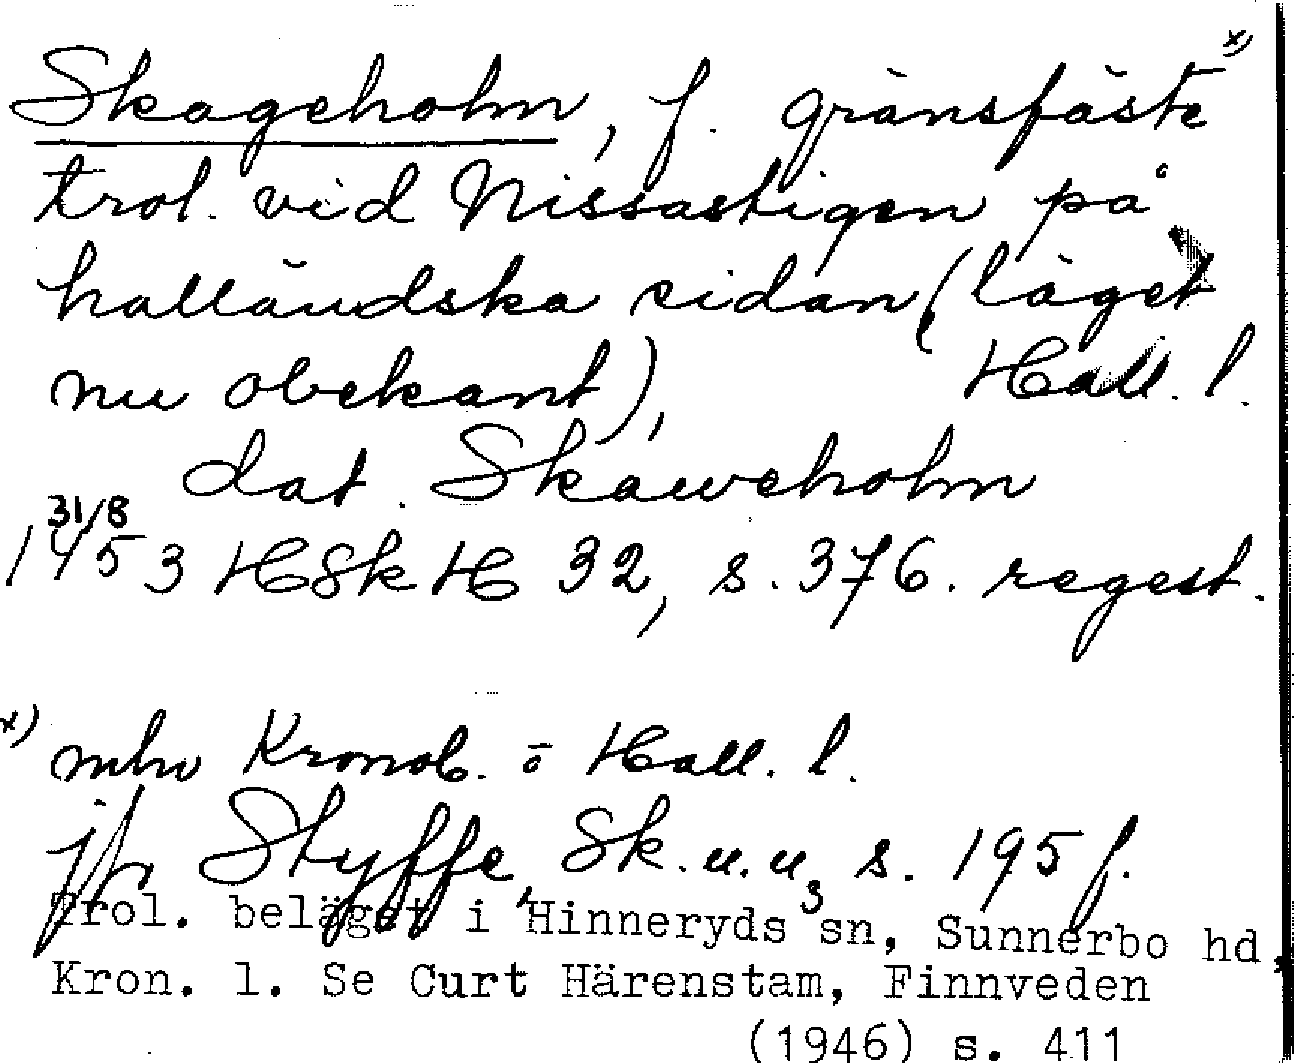 Skageholm, f. gränsfäste x)
trol. vid Nissastigen på
halländska sidan (läget
nu obekant), Hall. l.
dat. Skaweholm
31/8
1453 HSkH 32, s. 376. regest.
x) mln Kronob. o Hall. l.
jfr Styffe, Sk. u. u3 s. 195 f.
Trol. beläget i Hinneryds sn, Sunnerbo hd,
Kron. l. Se Curt Härenstam, Finnveden
(1946) s. 411